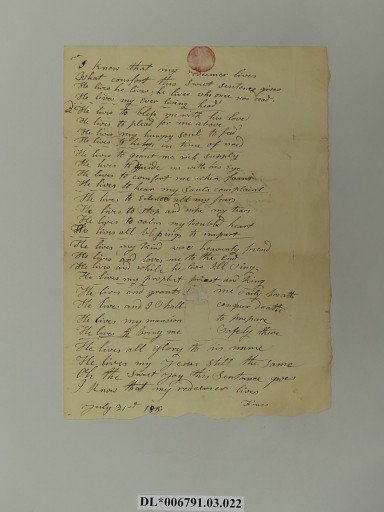 I Know that my redeemer lives
What comfort this Sweet Sentence gives
He lives he lives, he lives who once was dead
He lives my ever living head
He lives to bless me with his love
He lives to plead for me above
He lives my hungry soul to feed
He lives to help in time of need
He lives to grant me rich supply
He lives to guide me with his eye
He lives to comfort me when faint
He lives to hear my Souls complaint
He lives to Silence all my fears
He lives to stop and wipe my tears
He lives to calm my trouble heart
He lives all blessings to impart
He lives my kind wise heavenly friend
He lives and loves me to the End
He lives and while he lives Ill Sing
He lives my prophet priest and King
He lives and grants me daily breath
He lives and I Shall conquer death
He lives my mansion to prepare
He lives to bring me Safely there
He lives all glory to his name
He lives my Jesus still the Same
Oh the Sweet Joy this Sentance gives
I Know that my redeemer lives
July 31st Finis
DL*006791.03.022